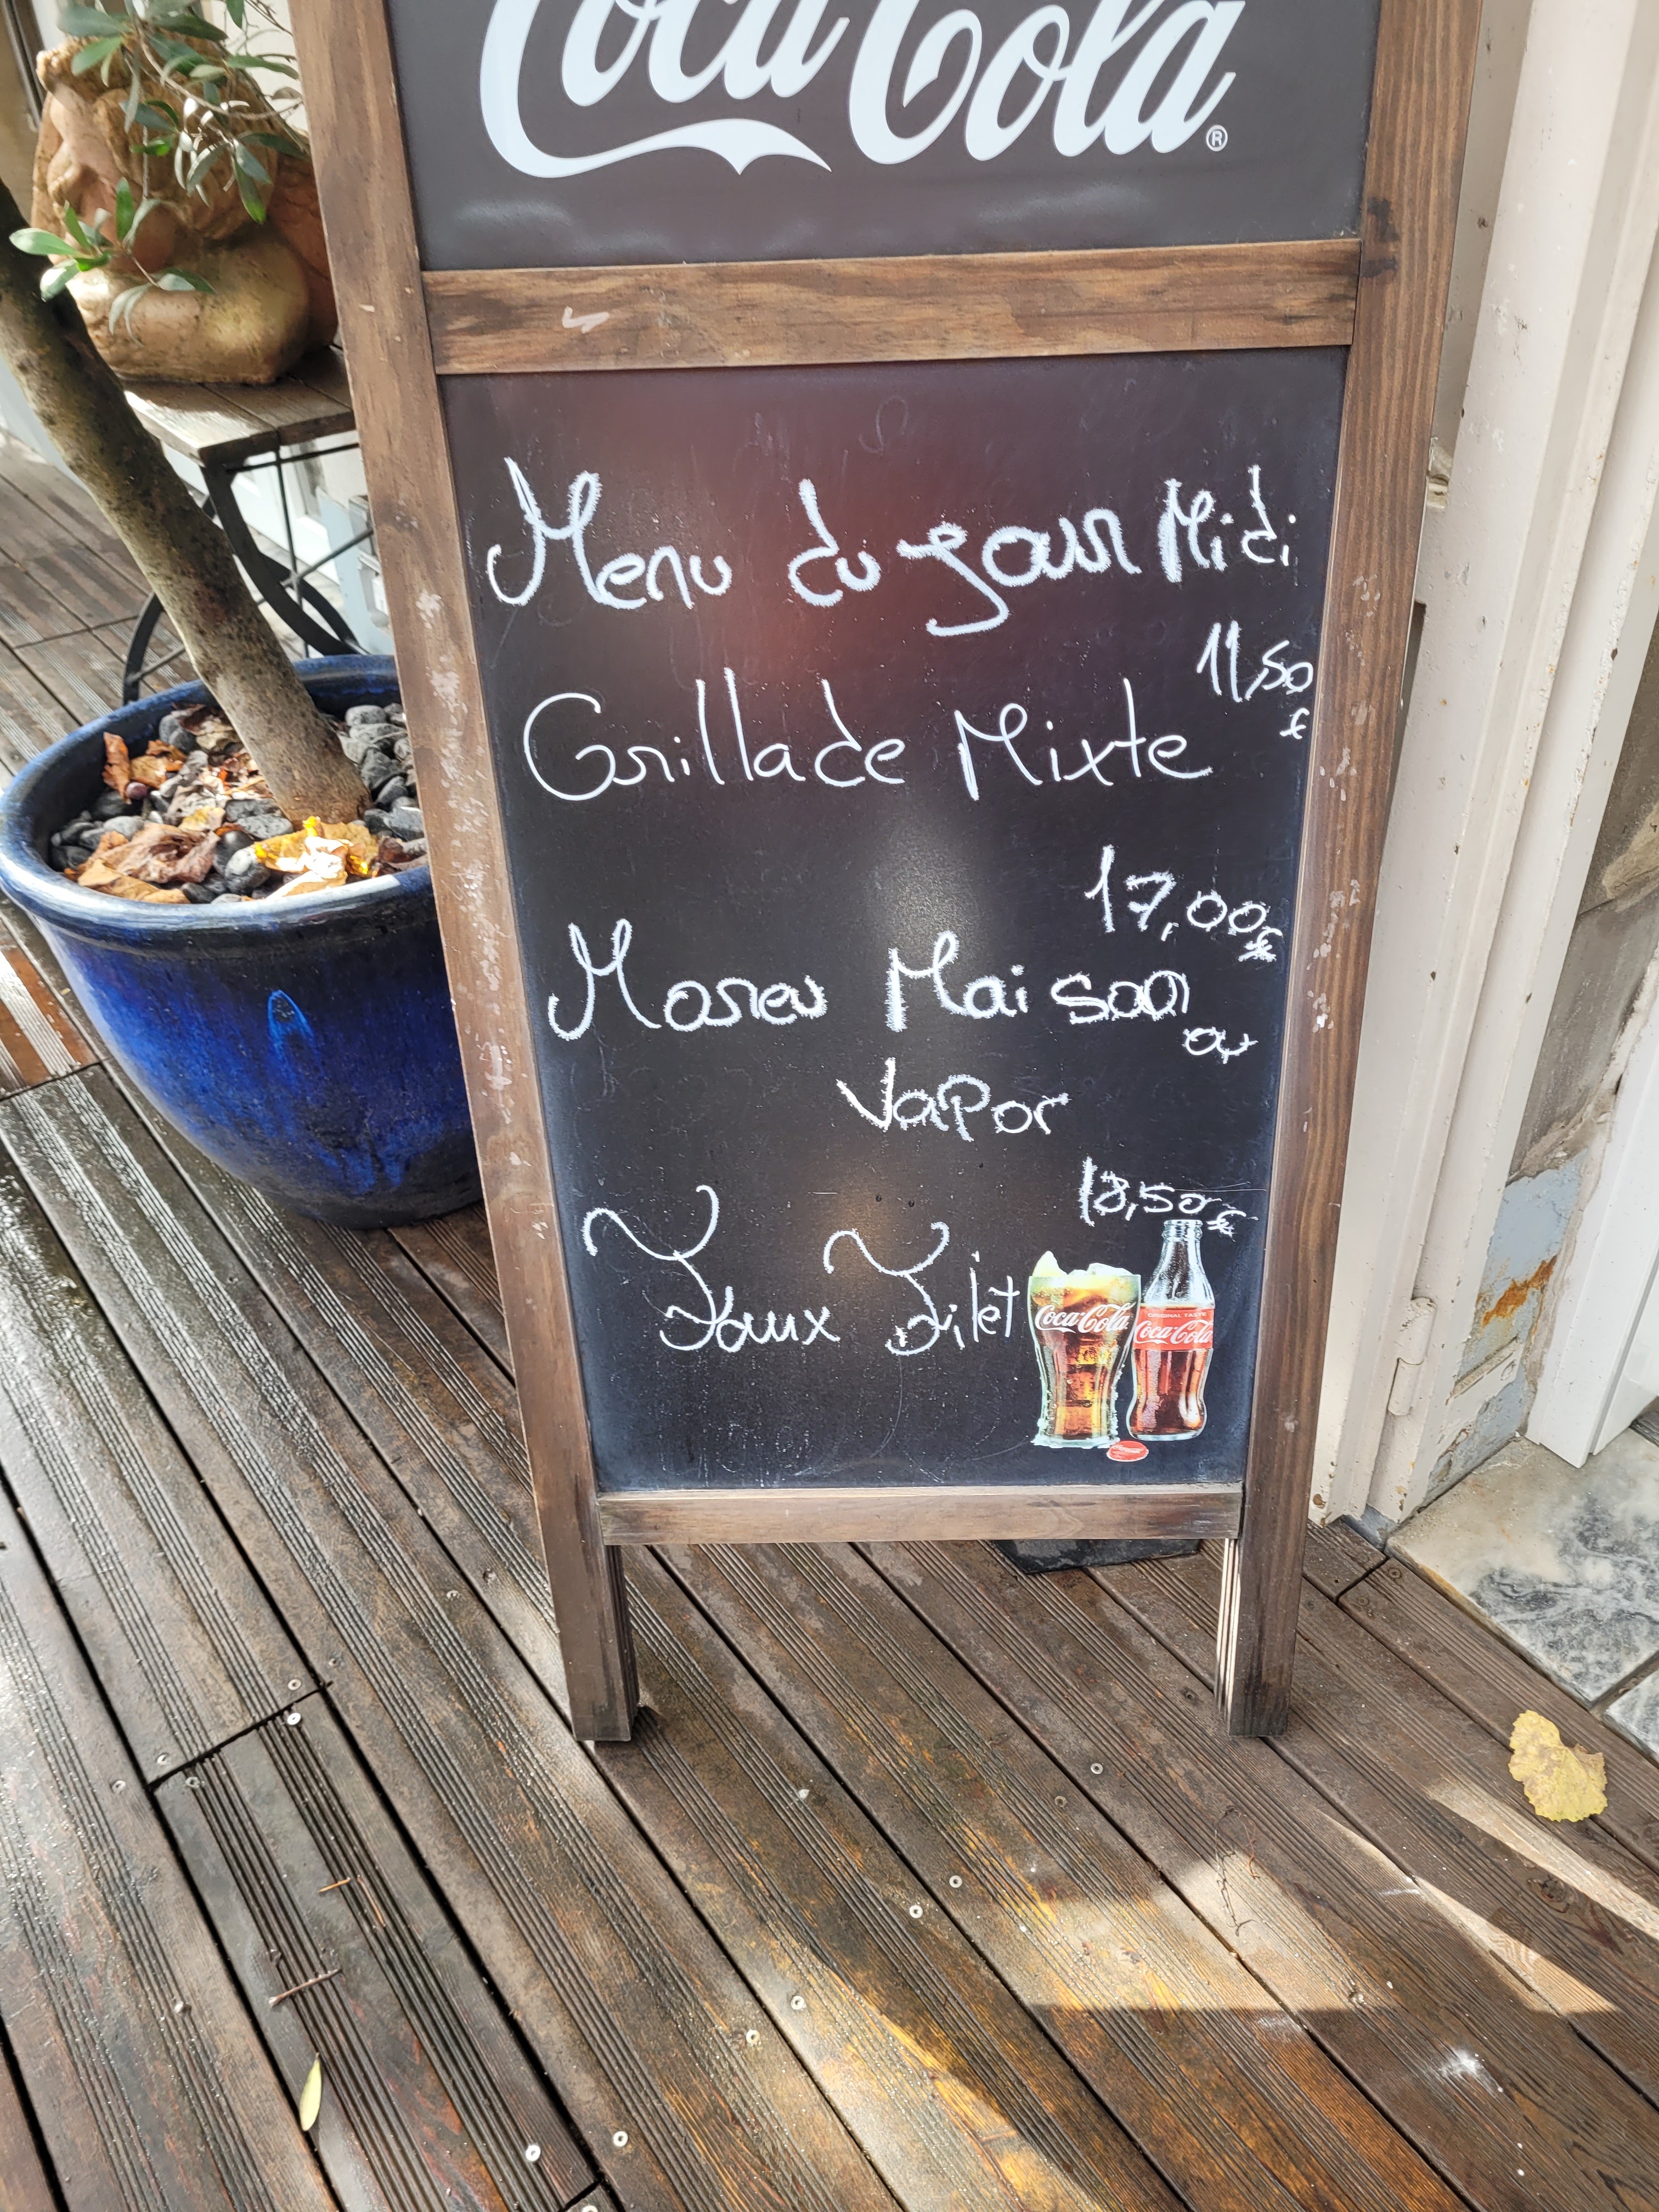 Coca-Cola®
Menu du jour Midi
11,50
€
Grillade Mixte
17,00€
Moreu Maison
ou
Vapor
18,50€
Faux Filet
Coca-Cola
ORIGINAL TASTE
Coca-Cola